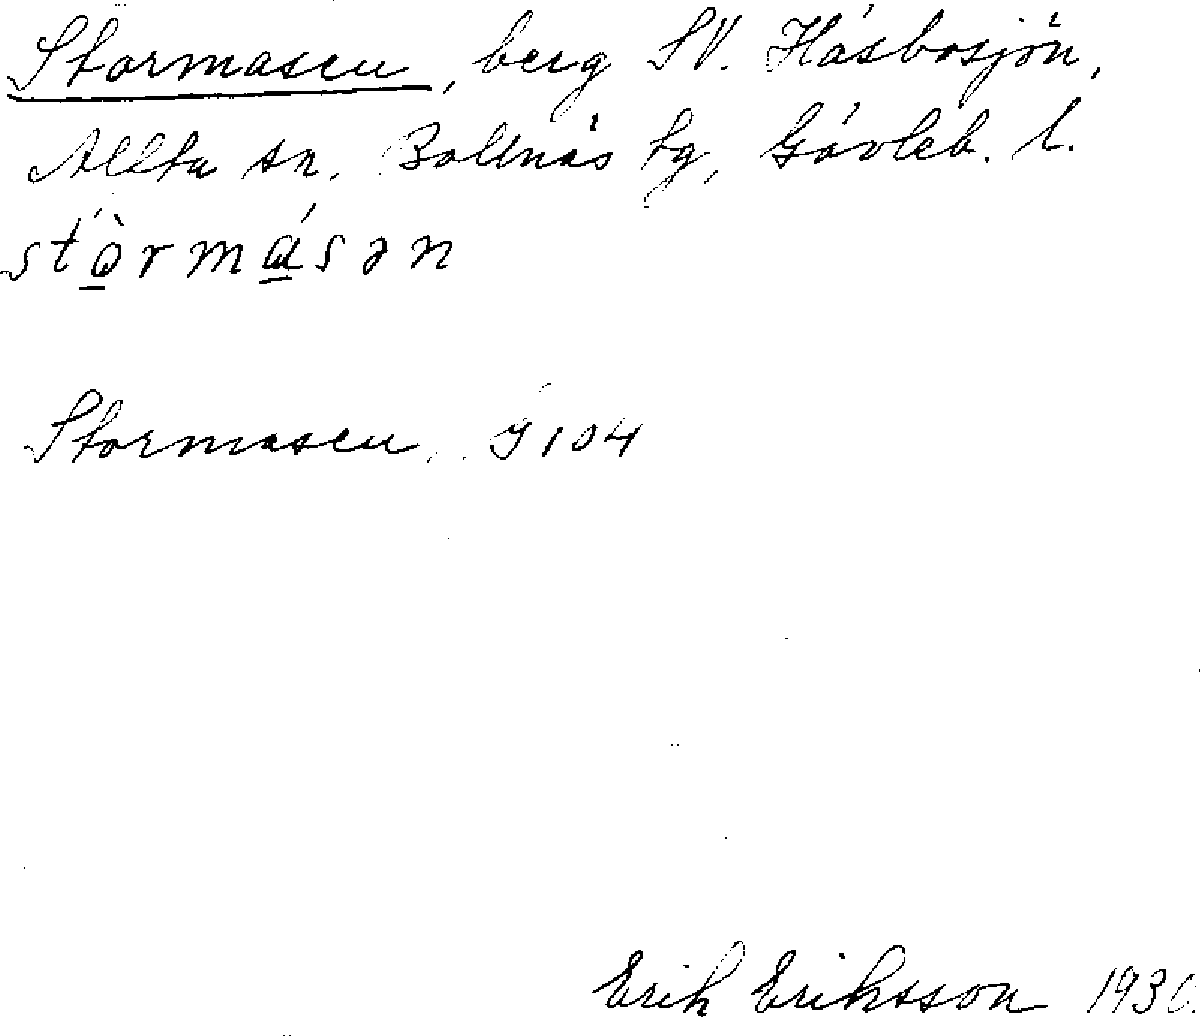 Stormasen, berg SV. Häsbosjön,
Alfta sn, Bollnäs tg, Gävleb. l.
stòrmásən
Stormasen, G 104
Erik Eriksson 1930.